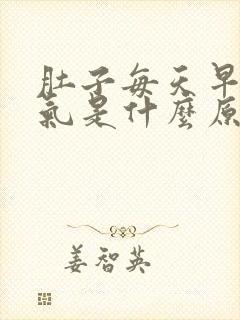 肚子每天早
氣是什麼原
姜智英